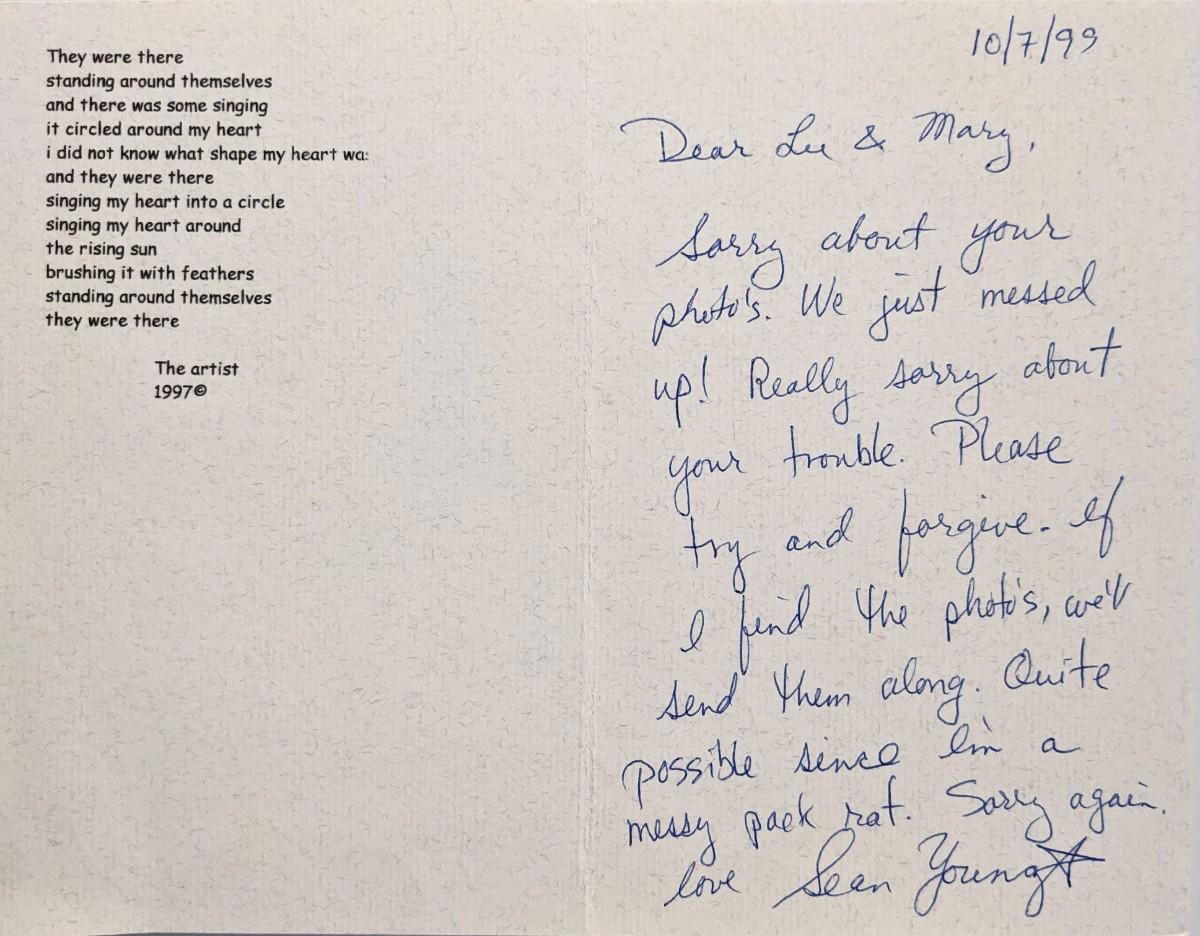 They were there
standing around themselves
and there was some singing
it circled around my heart
i did not know what shape my heart wa:
and they were there
singing my heart into a circle
singing my heart around
the rising sun
brushing it with feathers
standing around themselves
they were there
The artist
1997©
10/7/99
Dear Lee & Mary,
Sorry about your
photo's. We just messed
up! Really sorry about
your trouble. Please
try and forgive. If
I find the photo's, we'll
send them along. Quite
possible since I'm a
messy pack rat. Sorry again.
love Sean Young